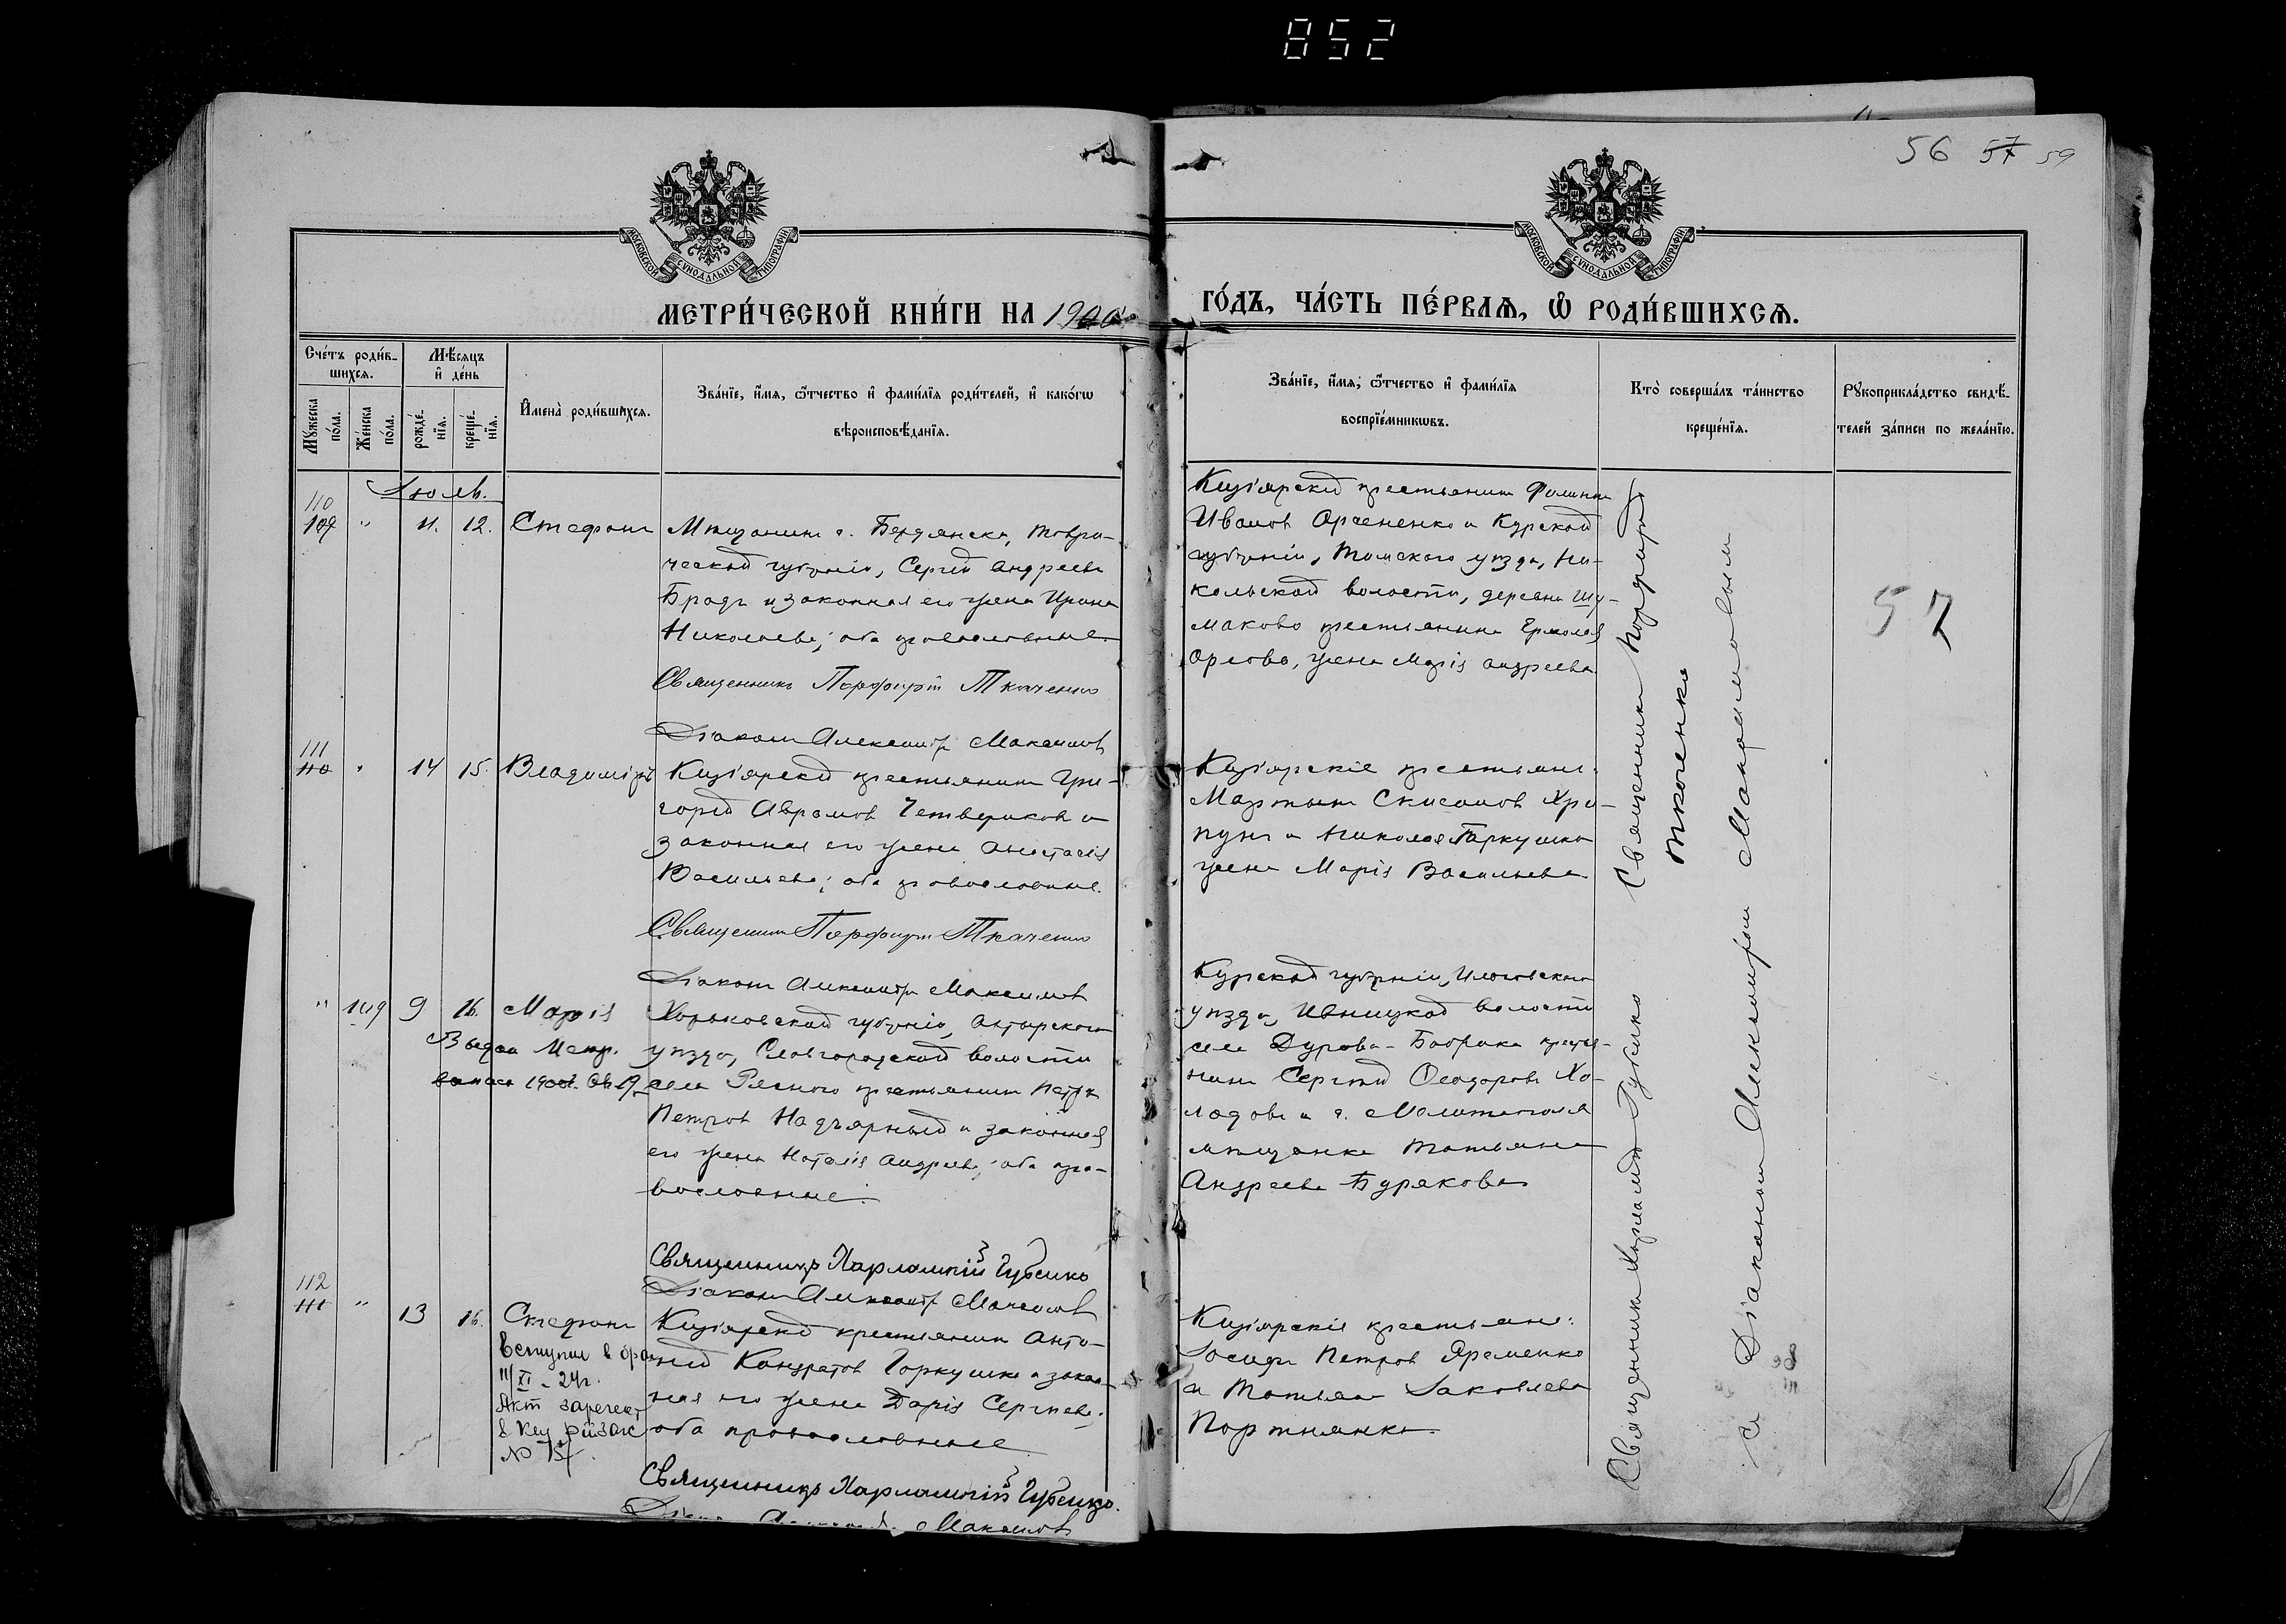 852
56 57 59
МОСКОВСКОЙ СѴНОДАЛЬНОЙ ТИПОГРАФІИ
МОСКОВСКОЙ СѴНОДАЛЬНОЙ ТИПОГРАФІИ
МЕТРИ́ЧЕСКОЙ КНИ́ГИ НА 1900
ГО́ДЪ, ЧА́СТЬ ПЕ́РВАѦ, Ѡ РОДИ́ВШИХСѦ.
Сче́тъ роди́в-
шихсѧ.
Мꙋ́жеска
по́ла.
Же́нска
по́ла.
Мѣ́сѧцъ
и҆ де́нь
рожде́-
нїѧ.
креще́-
нїѧ.
И҆мена̀ роди́вшихсѧ.
Зва́нїе, и҆́мѧ, ѻ҆́тчество и҆ фами́лїѧ роди́телей, и҆ како́гѡ
вѣроисповѣ́данїѧ.
Зва́нїе, и҆́мѧ, ѻ҆́тчество и҆ фами́лїѧ
воспрїе́мникѡвъ.
Кто̀ соверша́лъ та́инство
креще́нїѧ.
Рꙋкоприкла́дство свидѣ́-
телей за́писи по жела́нїю.
Іюль.
110
109 " 11. 12. Стефанъ
Мѣщанинъ г. Бердянска, Таври-
ческой губерніи, Сергѣй Андреевъ
Брадъ и законная его жена Ирина
Николаева; оба православные.
Священникъ Порфирій Ткаченко
Діаконъ Александръ Максимовъ
Крестьянинъ
Ивановъ Арсененко и Курской
губерніи, Тимскаго уѣзда, Ни-
кольской волости, деревни Шу-
маково крестьянина Ермолая
Орлова, жена Марія Андреева.
111
110 " 14 15. Владиміръ
крестьянинъ Гри-
горій Аврамовъ Четвериковъ и
законная его жена Анастасія
Васильева; оба православные.
Священникъ Порфирій Ткаченко
Діаконъ Александръ Максимовъ
крестьяне:
Мартынъ Хри-
пунъ и Николая Гаркушка
жена Марія Васильева
" 109 9 16. Марія
Выдан Метр.
1900 г. 19
Харьковской губерніи, Ахтырскаго
уѣзда, Славгородской волости
села Рясного крестьянинъ Петръ
Петровъ Надъярный и законная
его жена Наталія Андреева; оба пра-
вославные.
Священникъ Харлампій Губенко
Діаконъ Александръ Максимовъ
Курской губерніи,
уѣзда, Ивницкой волости
села Дурова-Бобрика крестья-
нинъ Сергѣй Ѳеодоровъ Хо-
лодовъ и г. Мелитополя
мѣщанка Татьяна
Андреева Бурякова
112
111 " 13 16. Стефанъ
Вступил в брак
11/XI - 24 г.
Акт зарегист
№ 15
крестьянинъ Анто-
ній Кондратовъ Гаркушка и закон-
ная его жена Дарія Сергѣева;
оба православные
Священникъ Харлампій Губенко.
Діаконъ Максимовъ
крестьяне:
Іосифъ Петровъ Яременко
и Татьяна Іаковлева
Портнянко.
Священникъ Порфирій
Ткаченко
Священникъ Харлампій Губенко
съ Діакономъ Александромъ Максимовымъ
57